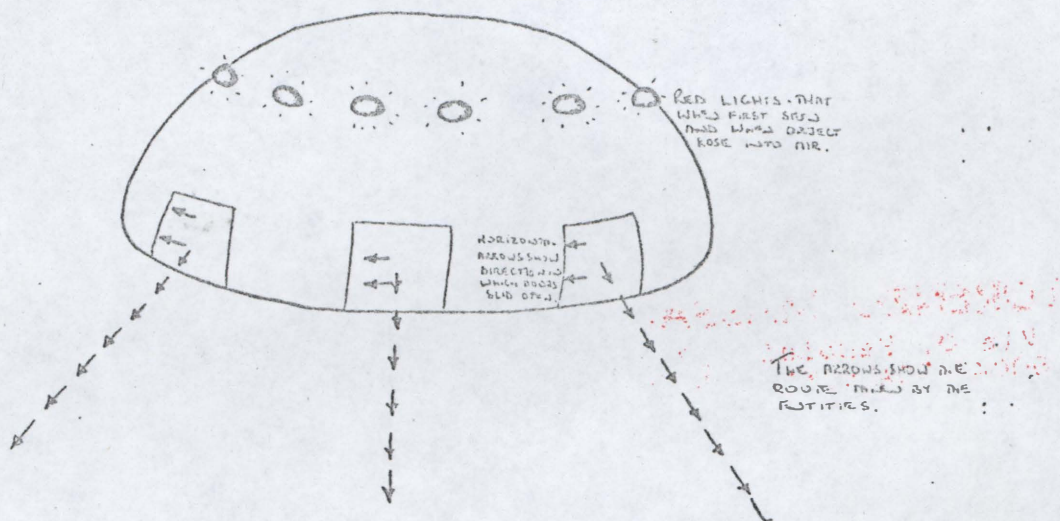 RED LIGHTS THAT
WHEN FIRST SEEN
AND WHEN OBJECT
ROSE INTO AIR.
HORIZONTAL
ARROWS SHOW
DIRECTION IN
WHICH DOORS
SLID OPEN.
THE ARROWS SHOW THE
ROUTE TAKEN BY THE
ENTITIES.